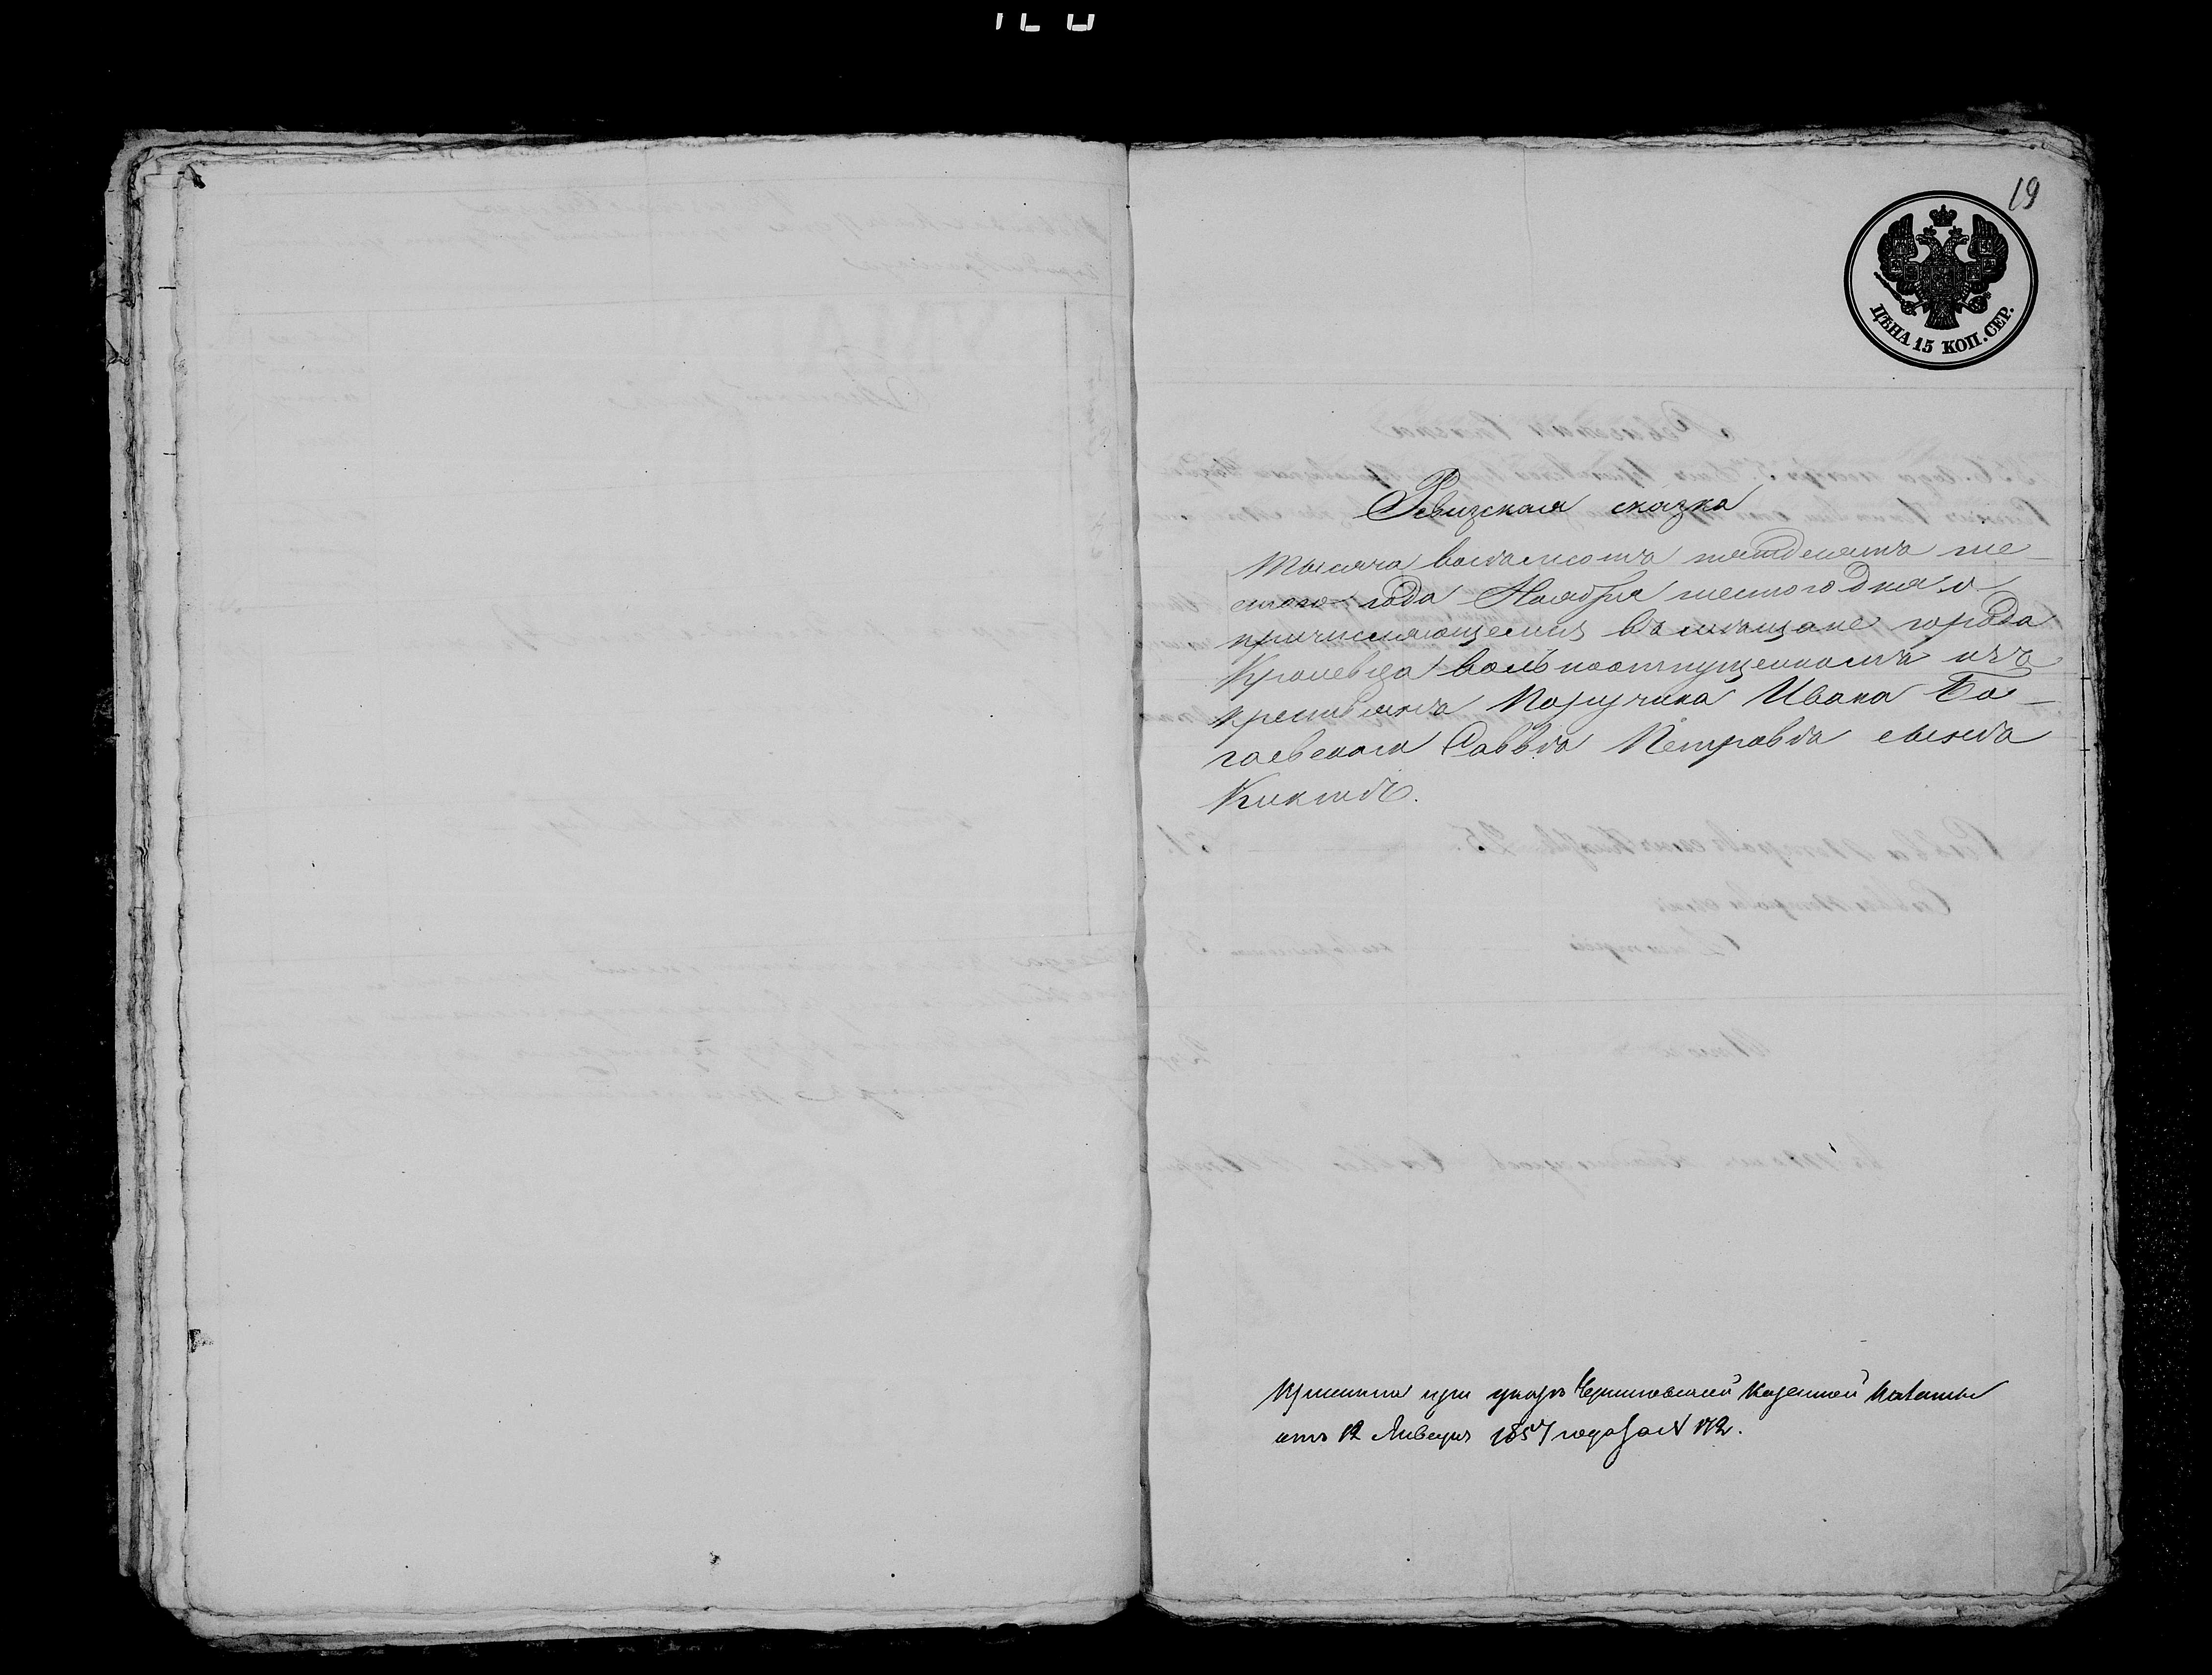 19
ЦѢНА 15 КОП. СЕР.
Ревизская сказка
тысяча восемьсотъ пятьдесятъ ше-
стого года Ноября шестого дня о
причисляющемся въ мещане города
Кролевца вольноотпущенномъ изъ
крестьянъ Поручика Ивана Ба-
гаевскаго Саввѣ Петровѣ сынѣ
Киктѣ.
Прислана при указѣ Черниговской Казенной Палаты
отъ 12 Января 1857 года за № 172.